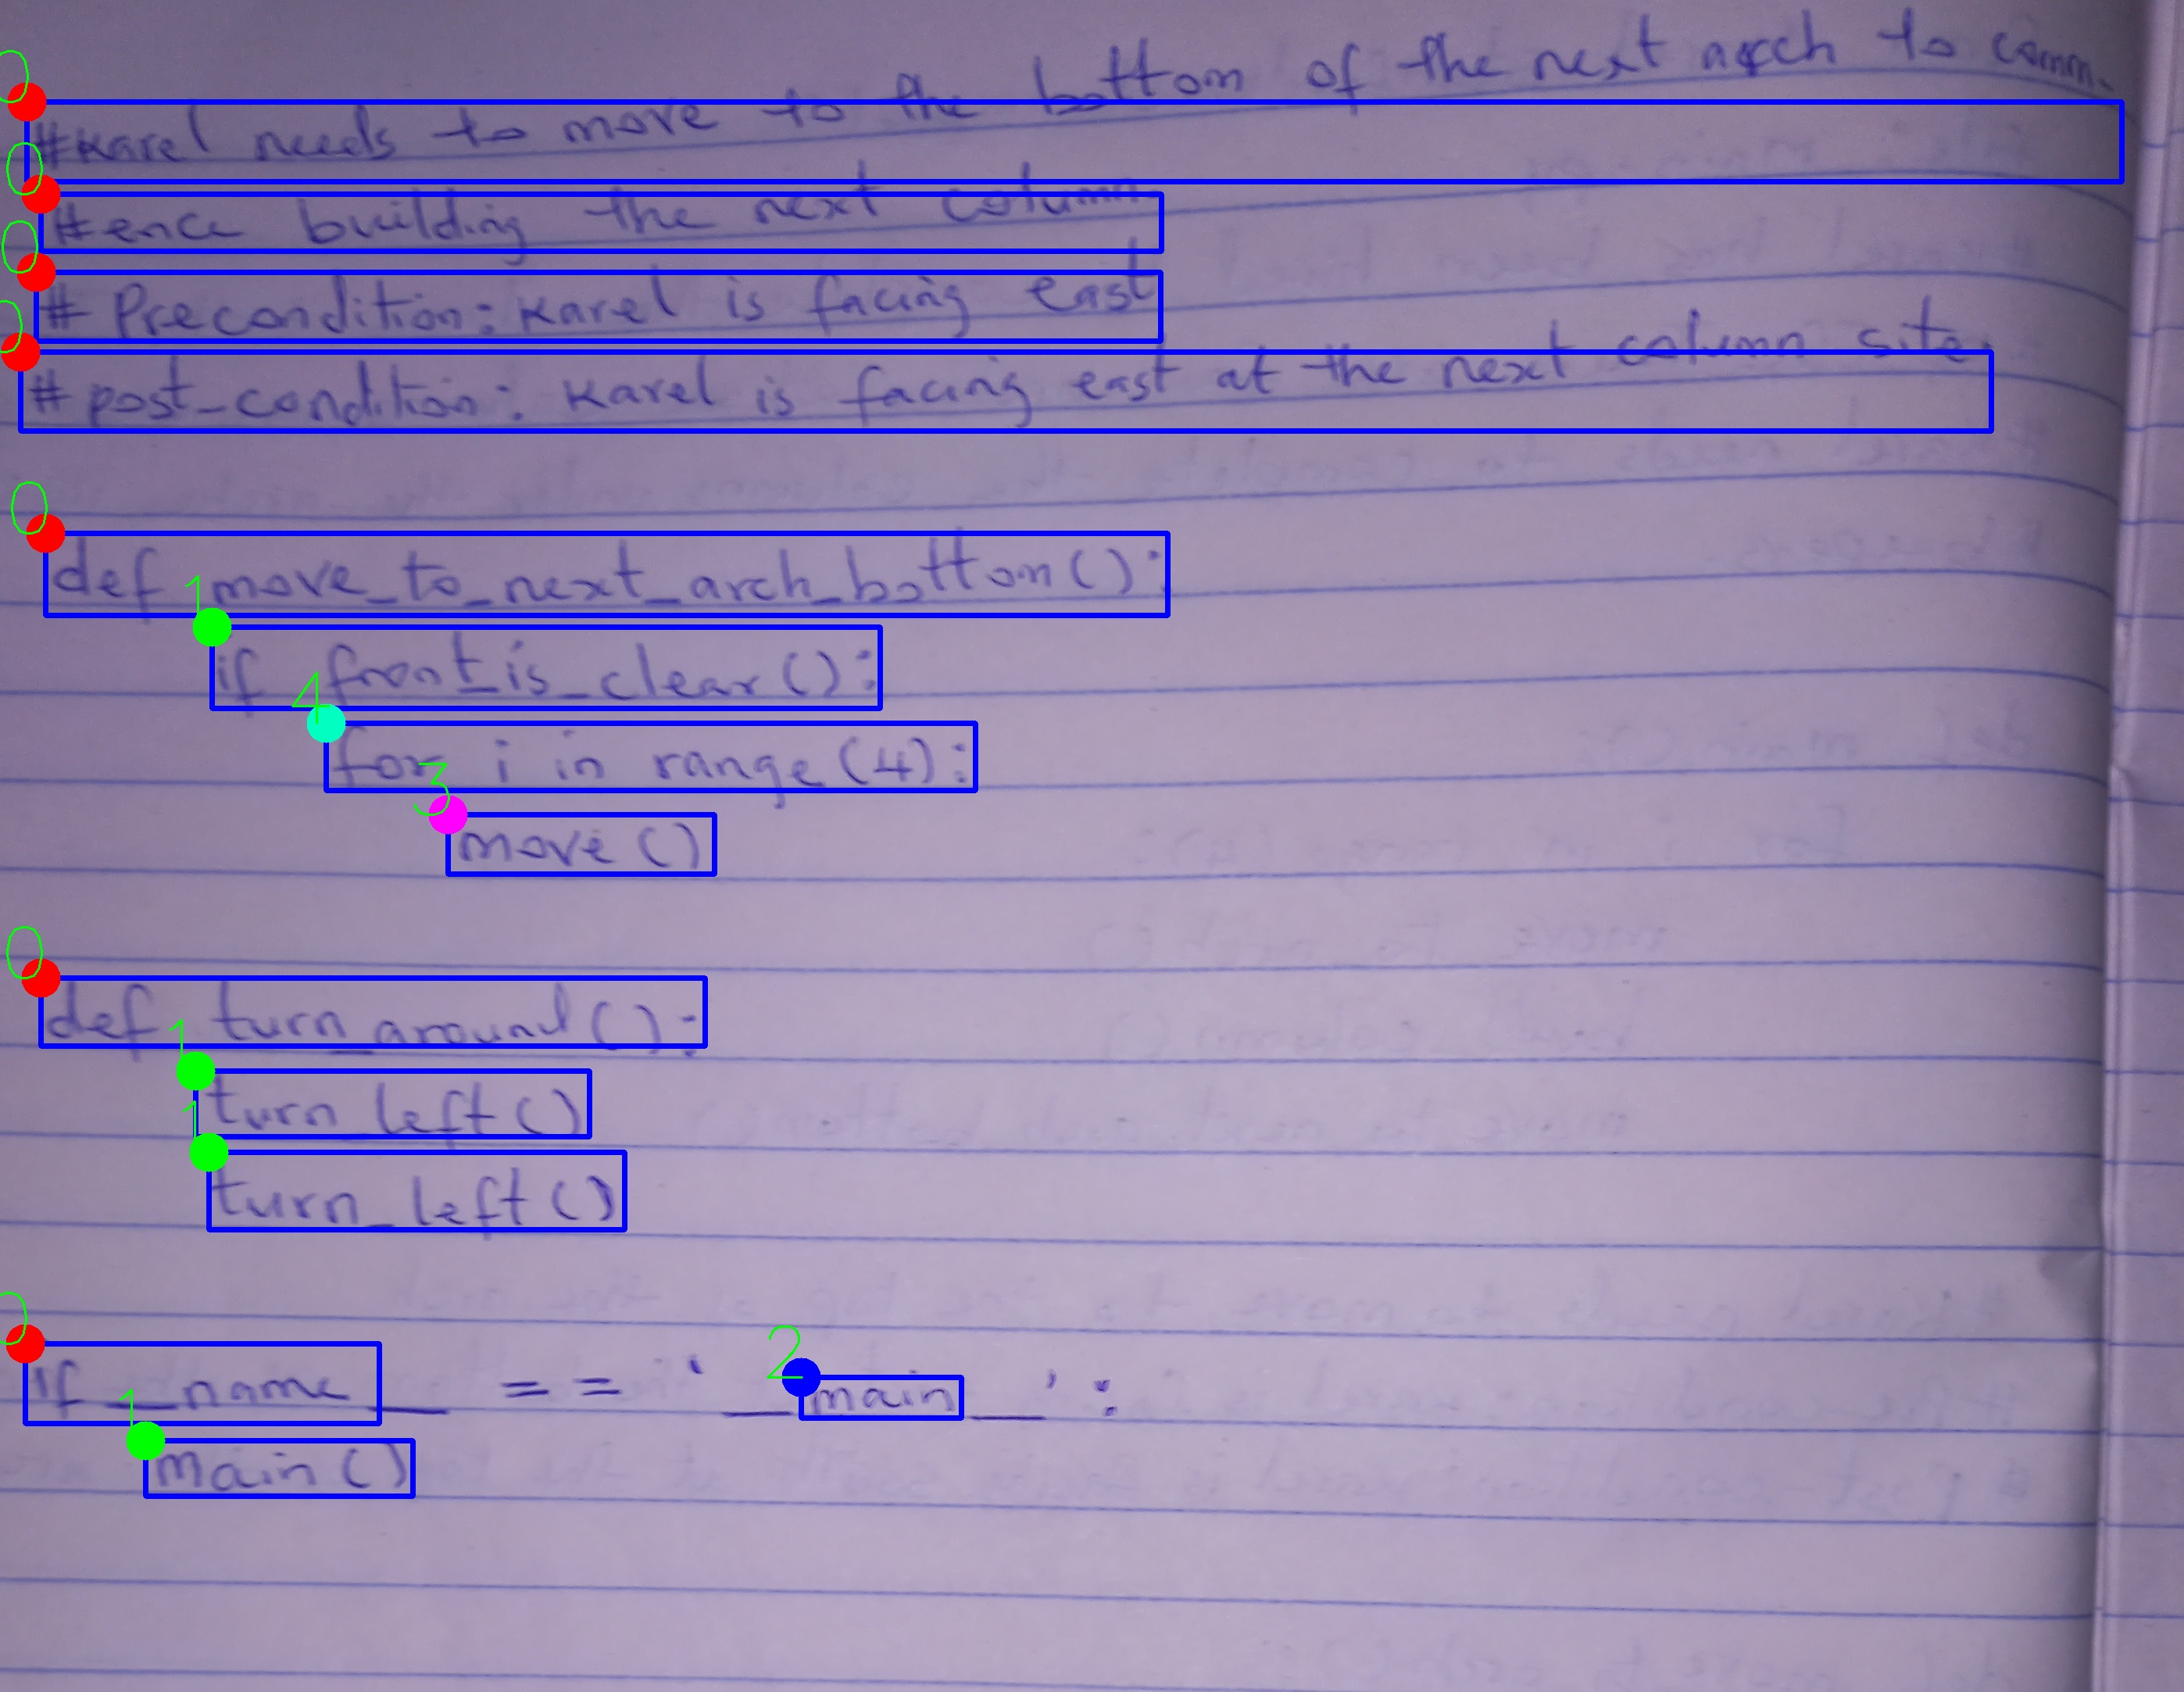 #Karel needs to move to the bottom of the next arch to comm-
#ence building the next column.
# Precondition: Karel is facing east
# post_condition: Karel is facing east at the next column site.
0
0
0
0
0
def move_to_next_arch_bottom():
1
if front_is_clear():
4
for i in range(4):
3
move()
0
def turn_around():
1
turn_left()
1
turn_left()
0
if __name__ == '__main__':
2
1
main()